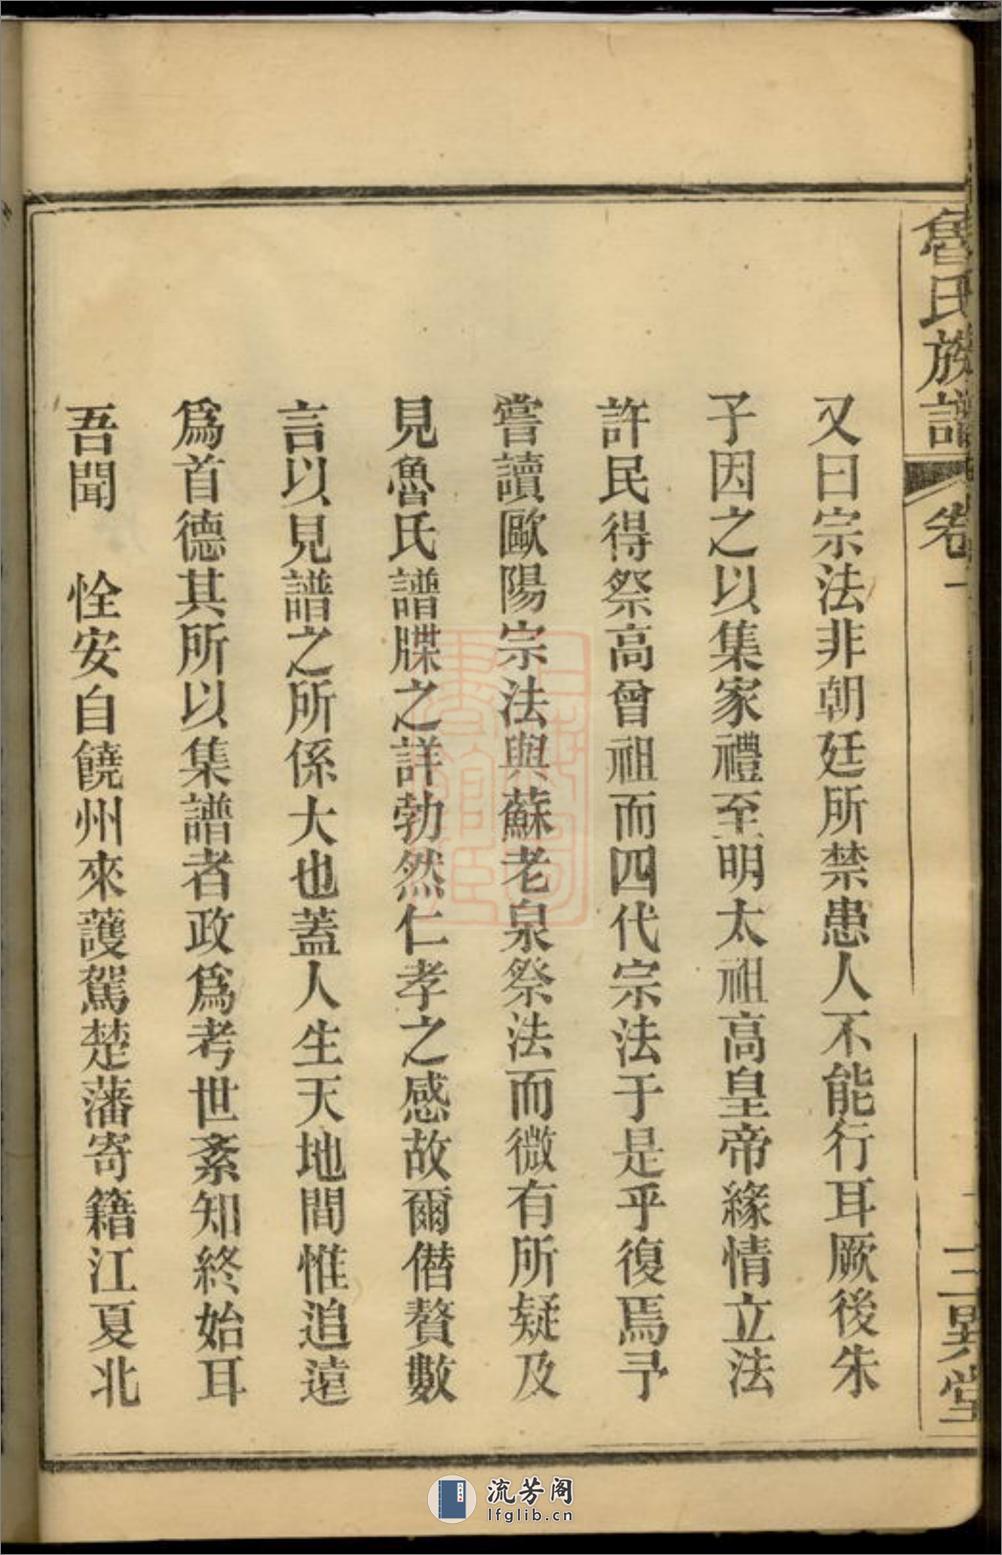 魯氏族譜 卷一 三異堂
又曰宗法非朝廷所禁患人不能行耳厥後朱
子因之以集家禮至明太祖高皇帝緣情立法
許民得祭高曾祖而四代宗法于是乎復焉予
嘗讀歐陽宗法與蘇老泉祭法而微有所疑及
見魯氏譜牒之詳勃然仁孝之感故爾僭贅數
言以見譜之所係大也蓋人生天地間惟追遠
爲首德其所以集譜者政爲考世紊知終始耳
吾聞 恮安自饒州來護駕楚藩寄籍江夏北
流芳阁
lfglib.cn